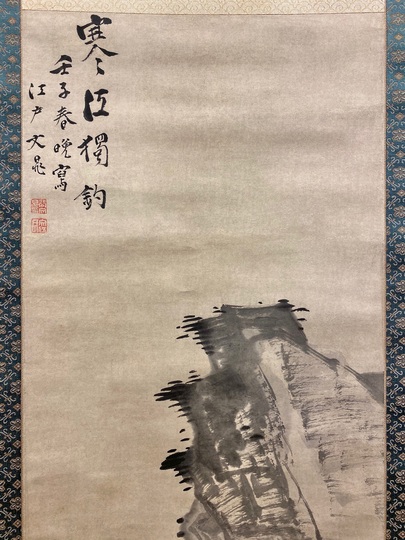 寒江獨釣
壬子春晩寫
江戸文晁